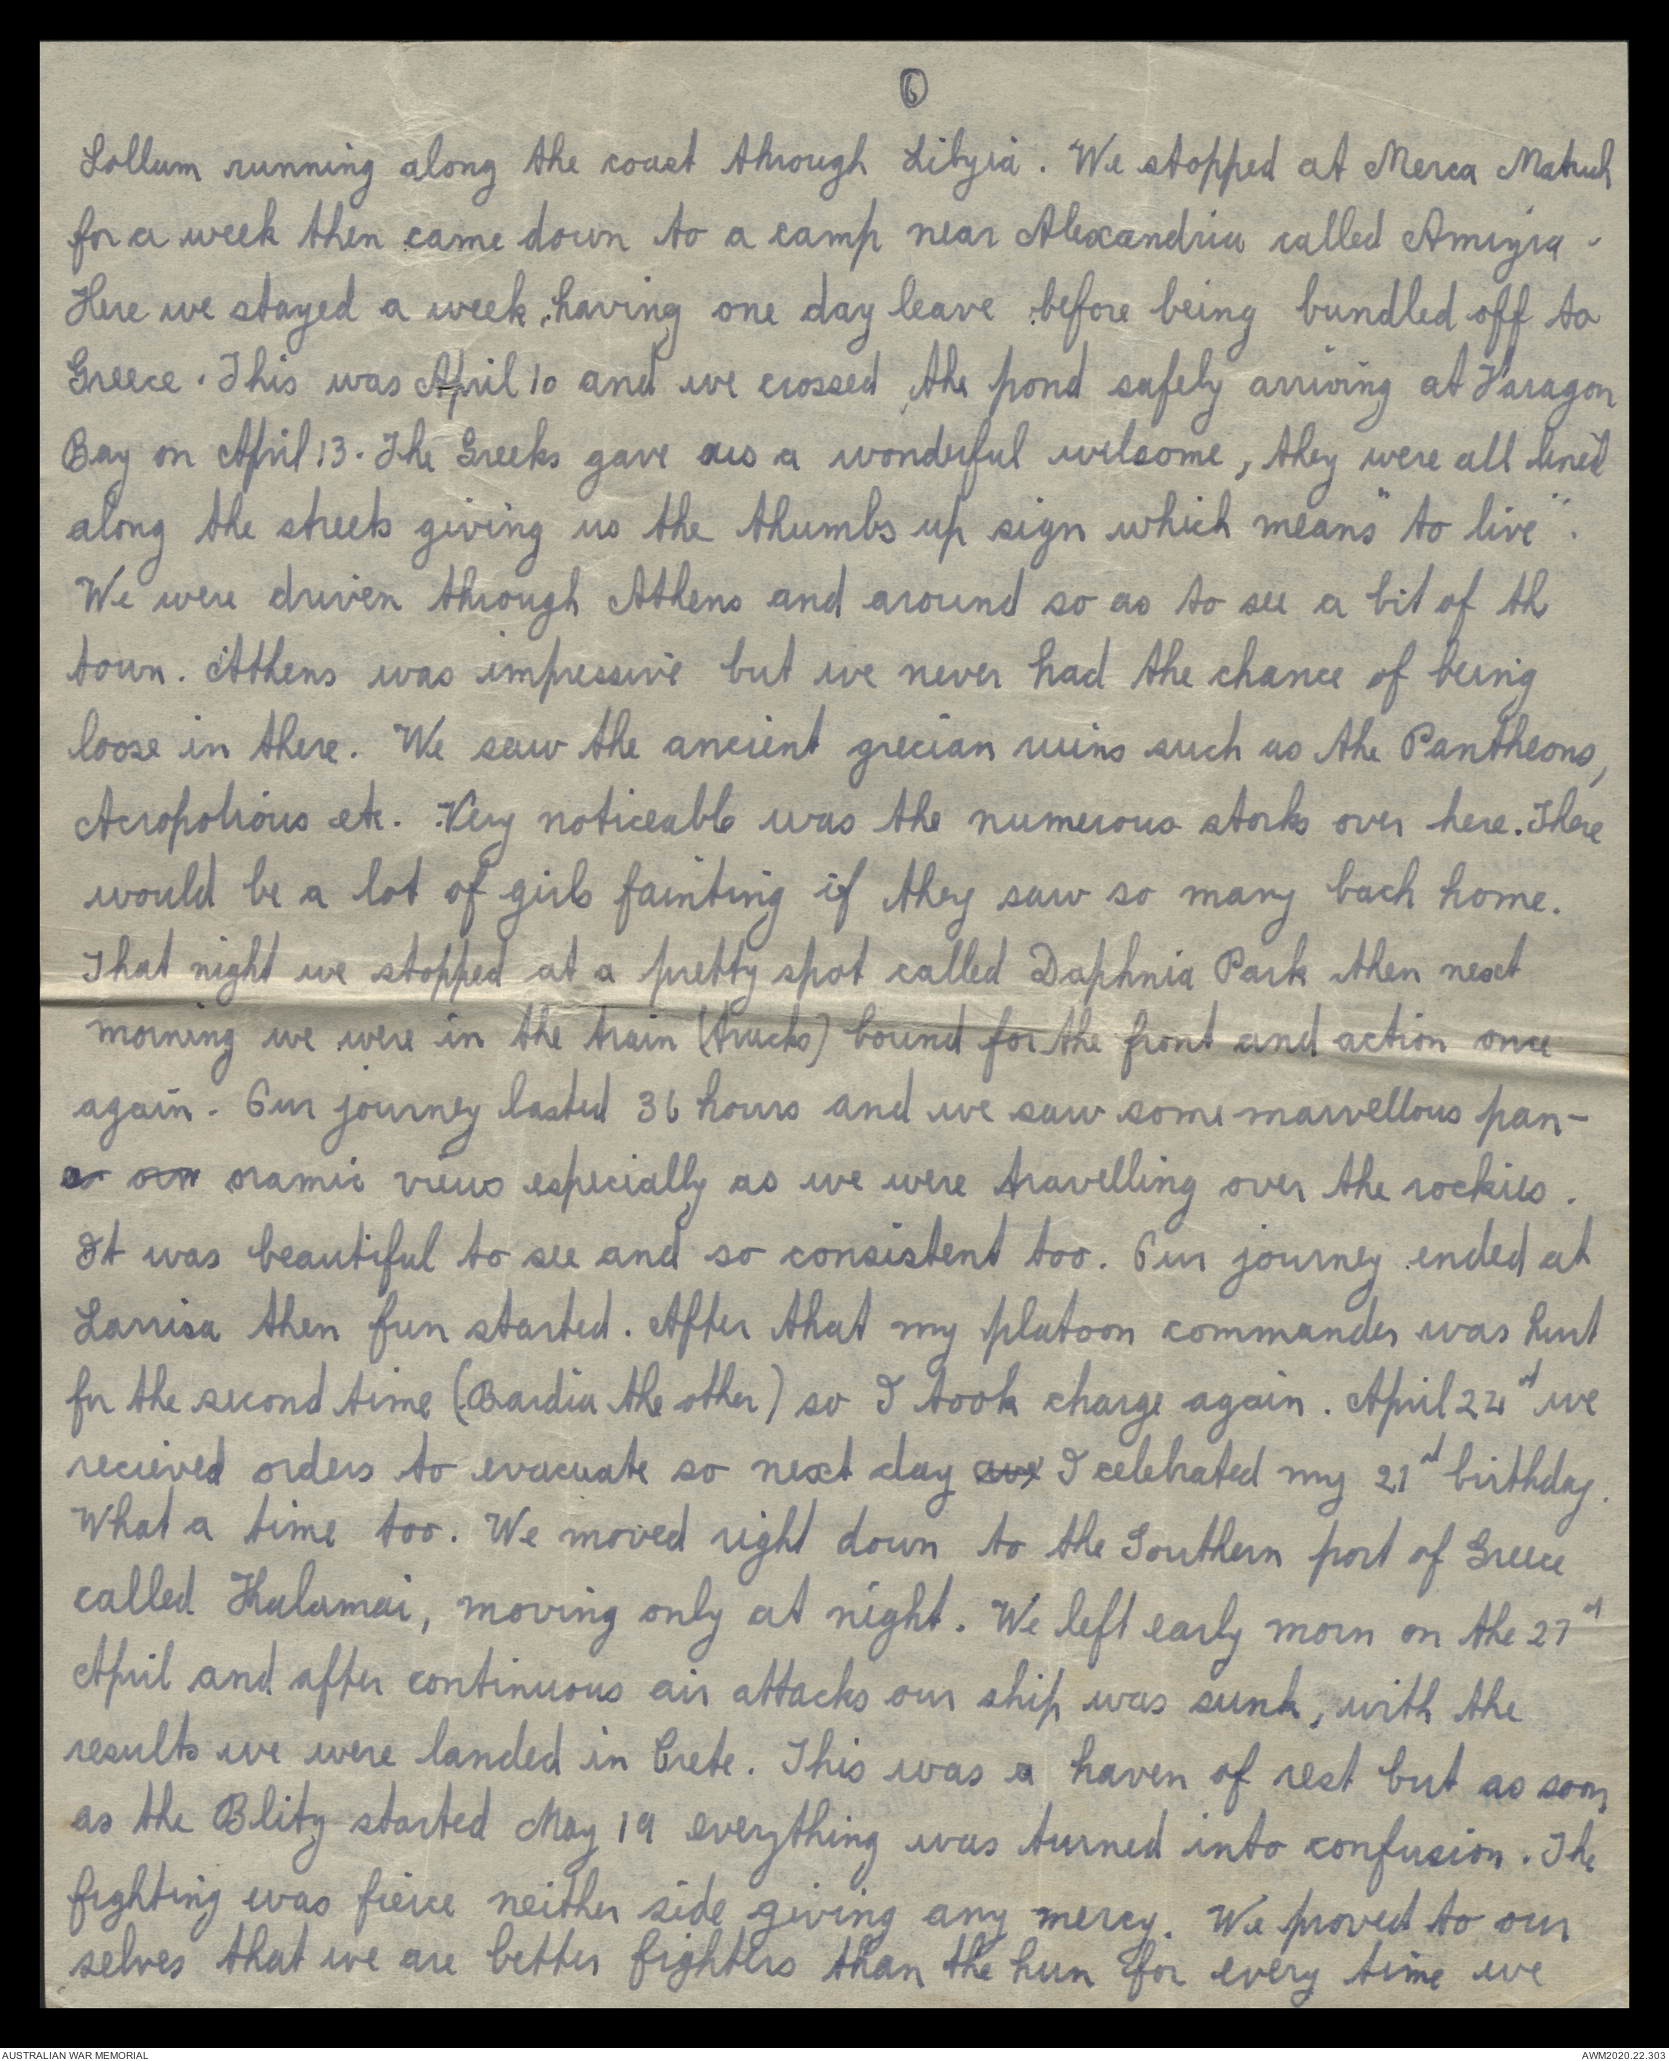 6
Sollum running along the coast through Libyia. We stopped at Merca Matruh
for a week then came down to a camp near Alexandria called Amiyia.
Here we stayed a week, having one day leave before being bundled off to
Greece. This was April 10 and we crossed the pond safely arriving at Paragon
Bay on April 13. The Greeks gave us a wonderful welcome, they were all lined
along the streets giving us the thumbs up sign which means "to live".
We were driven through Athens and around so as to see a bit of th
town. Athens was impressive but we never had the chance of being
loose in there. We saw the ancient grecian ruins such as the Pantheons,
Acropolious etc. Very noticeable was the numerous storks over here. There
would be a lot of girls fainting if they saw so many back home.
That night we stopped at a pretty spot called Daphnia Park then next
morning we were in the train (trucks) bound for the front and action once
again. Our journey lasted 36 hours and we saw some marvellous pan-
oramic views especially as we were travelling over the rockies.
It was beautiful to see and so consistent too. Our journey ended at
Larrisa then fun started. After that my platoon commander was hurt
for the second time (Bardia the other) so I took charge again. April 24st we
recieved orders to evacuate so next day I celebrated my 21st birthday.
What a time too. We moved right down to the Southern port of Greece
called Kalamai, moving only at night. We left early morn on the 27st
April and after continuous air attacks our ship was sunk, with the
results we were landed in Crete. This was a haven of rest but as soon
as the Blitz started May 19 everything was turned into confusion. The
fighting was fierce neither side giving any mercy. We proved to our
selves that we are better fighters than the hun for every time we
AUSTRALIAN WAR MEMORIAL
AWM2020.22.303